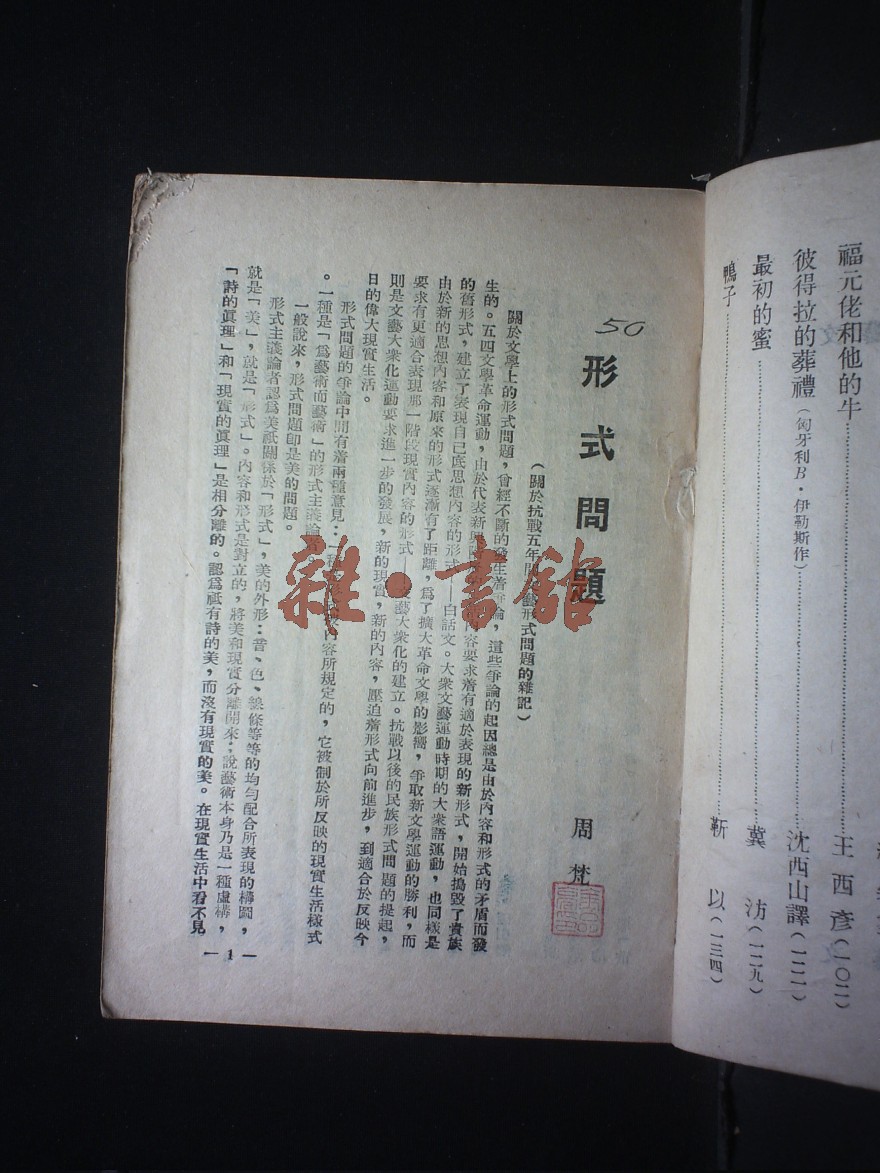 福元佬和他的牛……王西彥(一〇二)
彼得拉的葬禮(匈牙利B·伊勒斯作)……沈西山譯(一二一)
最初的蜜……冀汸(一二九)
鴨子……靳以(一三四)
50
形式問題
(關於抗戰五年間文藝形式問題的雜記)
周梵
關於文學上的形式問題,曾經不斷的發生著爭論,這些爭論的起因總是由於內容和形式的矛盾而發
生的。五四文學革命運動,由於代表新興階容要求着有適於表現的新形式,開始搗毀了貴族
的舊形式,建立了表現自己底思想內容的形式——白話文。大衆文藝運動時期的大衆語運動,也同樣是
由於新的思想內容和原來的形式逐漸有了距離,爲了擴大革命文學的影響,爭取新文學運動的勝利,而
要求有更適合表現那一階段現實內容的形式——文藝大衆化的建立。抗戰以後的民族形式問題的提起,
則是文藝大衆化運動要求進一步的發展,新的現實,新的內容,壓迫着形式向前進步,到適合於反映今
日的偉大現實生活。
形式問題的爭論中間有着兩種意見:一種內容所規定的,它被制於所反映的現實生活樣式
。一種是「爲藝術而藝術」的形式主義論
一般說來,形式問題即是美的問題。
形式主義論者認爲美祇關係於「形式」,美的外形:音、色、線條等等的均勻配合所表現的構圖,
就是「美」,就是「形式」。內容和形式是對立的,將美和現實分離開來;說藝術本身乃是一種虛構,
「詩的眞理」和「現實的眞理」是相分離的。認爲祇有詩的美,而沒有現實的美。在現實生活中看不見
— 1 —
雜·書舘